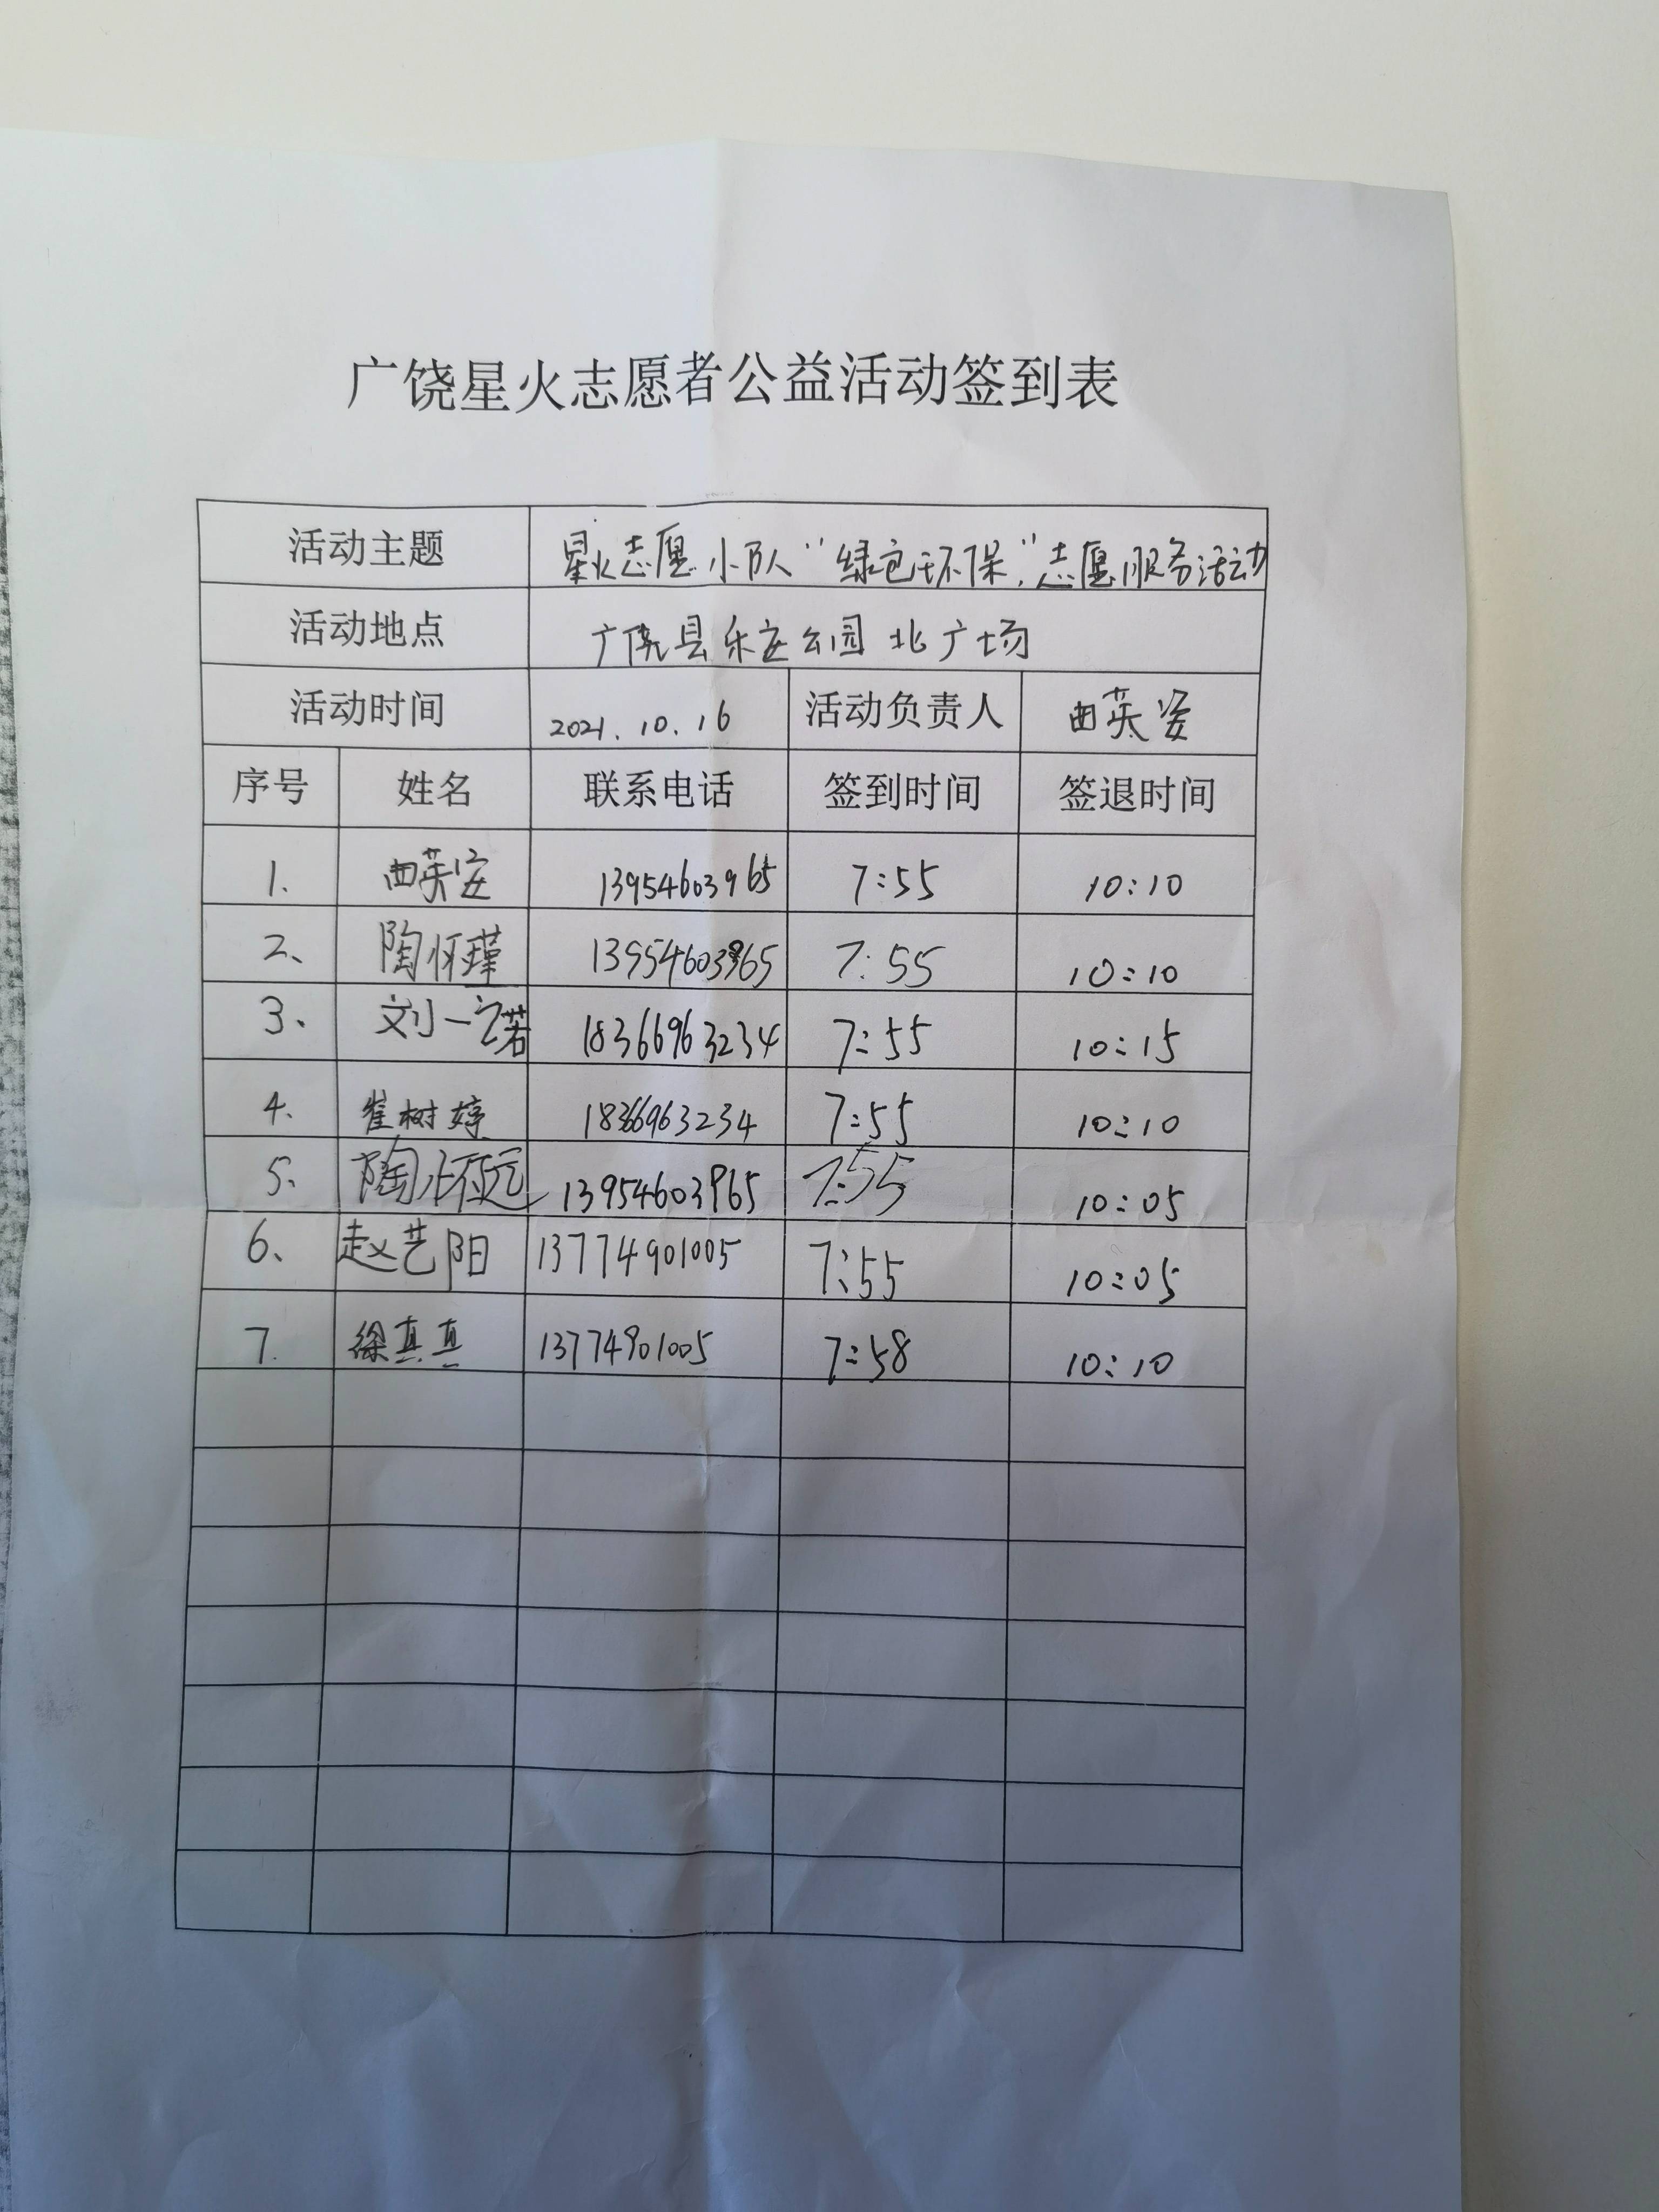 广饶星火志愿者公益活动签到表
活动主题 星火志愿小队“绿色环保”志愿服务活动
活动地点 广饶县乐安公园北广场
活动时间 2021.10.16 活动负责人 曲英姿
序号 姓名 联系电话 签到时间 签退时间
1、 曲英姿 13954603965 7:55 10:10
2、 陶怀瑾 13954603965 7:55 10:10
3、 刘一诺 18366963234 7:55 10:15
4、 崔树婷 18366963234 7:55 10:10
5、 陶怀远 13954603965 7:55 10:05
6、 赵艺阳 13774901005 7:55 10:05
7. 徐真真 13774901005 7:58 10:10